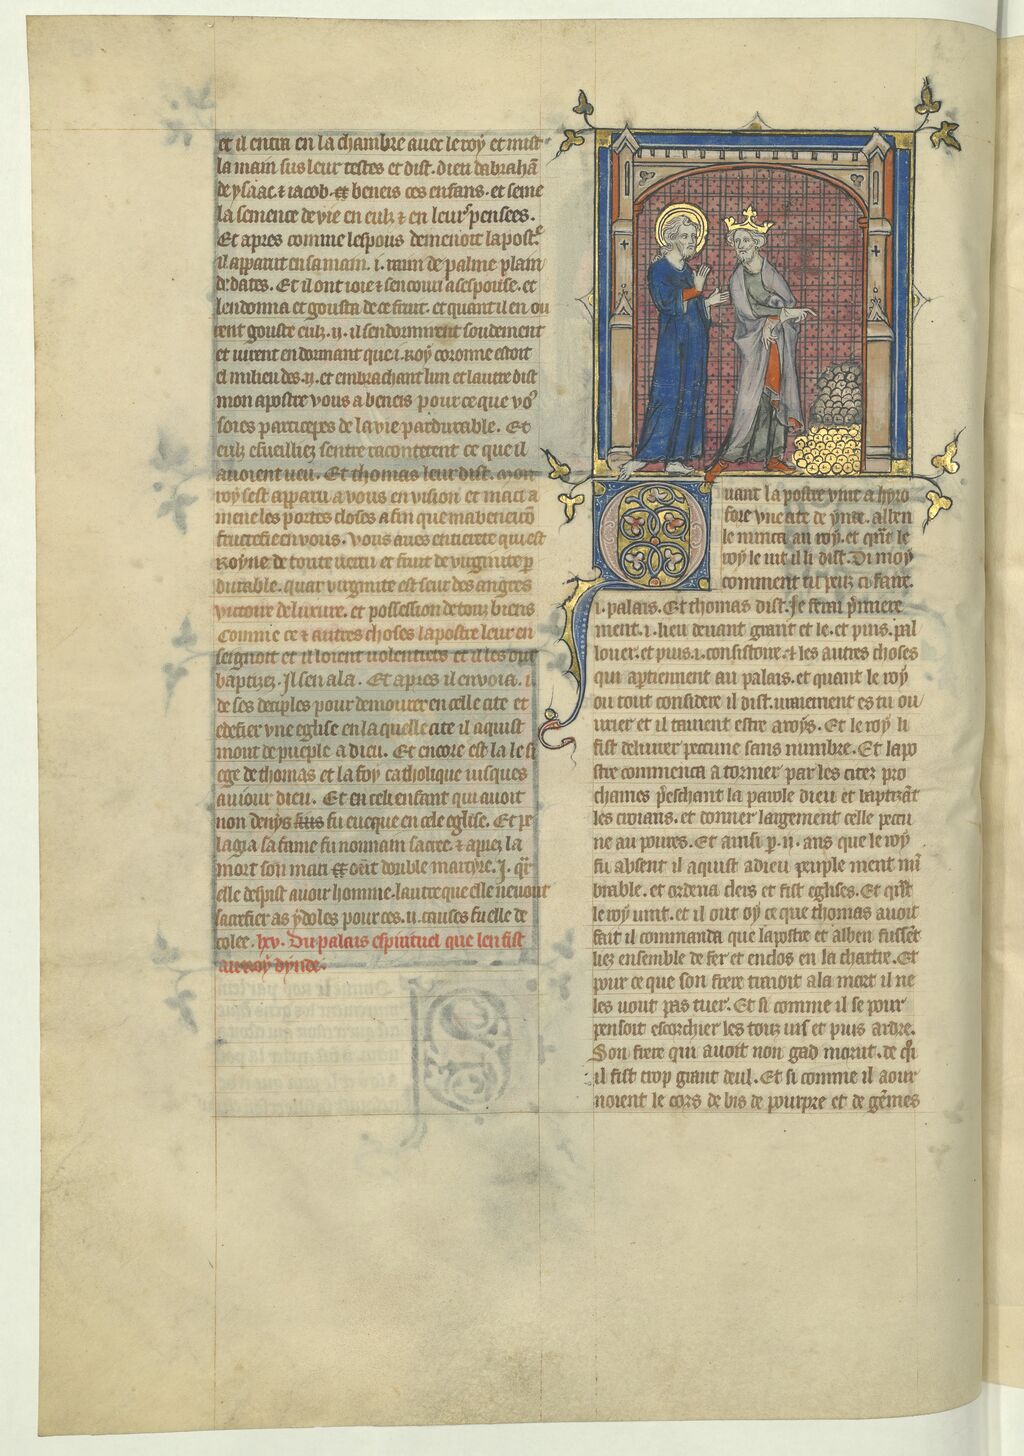 et il entra en la chambre auec le roy et mist
la main sus leur testes et dist. dieu dabrahã
de ysaac. ⁊ iacob. beneis ces enfans. et seme
la semence de vie en eulz ⁊ en leurs pensees.
Et apres comme lespous demenoit lapost.e
il apparut en sa main .i. raim de palme plain
de dates. Et il ont ioie ⁊ sen couru a sespouse. et
len donna et gousta de ce fruit. et quant il en ou
rent gouste eulz .ij. il sendormirent soudement
et virent en dormant que .i. Roy coronne estoit
el milieu des .ij. et embrachant lun et lautre dist
mon apostre vous a beneis pour ce que vo9
soies particeps de la vie pardurable. Et
eulz esueilliez sentre raconterent ce que il
auoient veu. Et thomas leur dist. mon
roy sest apparu a vous en vision et ma ci a
mene les portes closes a fin que ma beneicõ
fructefie en vous. vous aues entierete qui est
Royne de toute vertu et fruit de virginite p
durable. quar virginite est seur des angres
victoire de luxure. et possession de touz biens
Comme ce ⁊ autres choses lapostre leur en
seignoit et il loient volentiers et il les out
baptizez. Il sen ala. Et apres il envoia .i.
de ses deciples pour demourer en celle cite et
edefier vne eglise en la quelle cite il aquist
mout de pueple a dieu. Et encore est la le si
ege de thomas et la foy catholique iusques
au iour dieu. Et en celi enfant qui auoit
non denys fu euesque en cele eglise. Et pe
lagia sa fame fu nonnain sacree. ⁊ apres la
mort son mari out double martyre. I. qr
elle despist auoir homme. lautre que elle ne vout
sacrefier as ydoles pour ces .ij. causes fu elle de
colee. lxv. Du palais espirituel que len fist
au roy dynde.
Quant la postre vint a hyro
fore vne cite de ynde. alben
le nunca au roy. et qñt le
roy le vit il li dist. Di moy
comment tu peuz ci faire
.i. palais. Et thomas dist. Je ferai p̃miere
ment .i. lieu deuant grant et le. et puis .i. pal
louer. et puis .i. consistoire. ⁊ les autres choses
qui apartiennent au palais. et quant le roy
ou tout considere il dist. vraiement es tu ou
urier et il tauient estre a roys. Et le roy li
fist deliurer pecune sans numbre. Et lapo
stre commenca a torner par les citez pro
chaines p̃eschant la parole dieu et baptizãt
les croians. et donner largement celle pecu
ne au poures. Et ainsi p .ij. ans que le roy
fu absent il aquist a dieu peuple ment nũ
brable. et ordena clers et fist eglises. Et qñt
le roy vint. et il out oy ce que thomas auoit
fait il commanda que lapostre et alben fussẽt
liez ensemble de fer et enclos en la chartre. Et
pour ce que son frere traioit a la mort il ne
les vout pas tuer. Et si comme il se pour
pensoit escorchier les touz vis et puis ardre.
Son frere qui auoit non gad morut. de q̃i
il fist trop grant deul. Et si comme il aour
noient le cors de bis de pourpre et de gẽmes